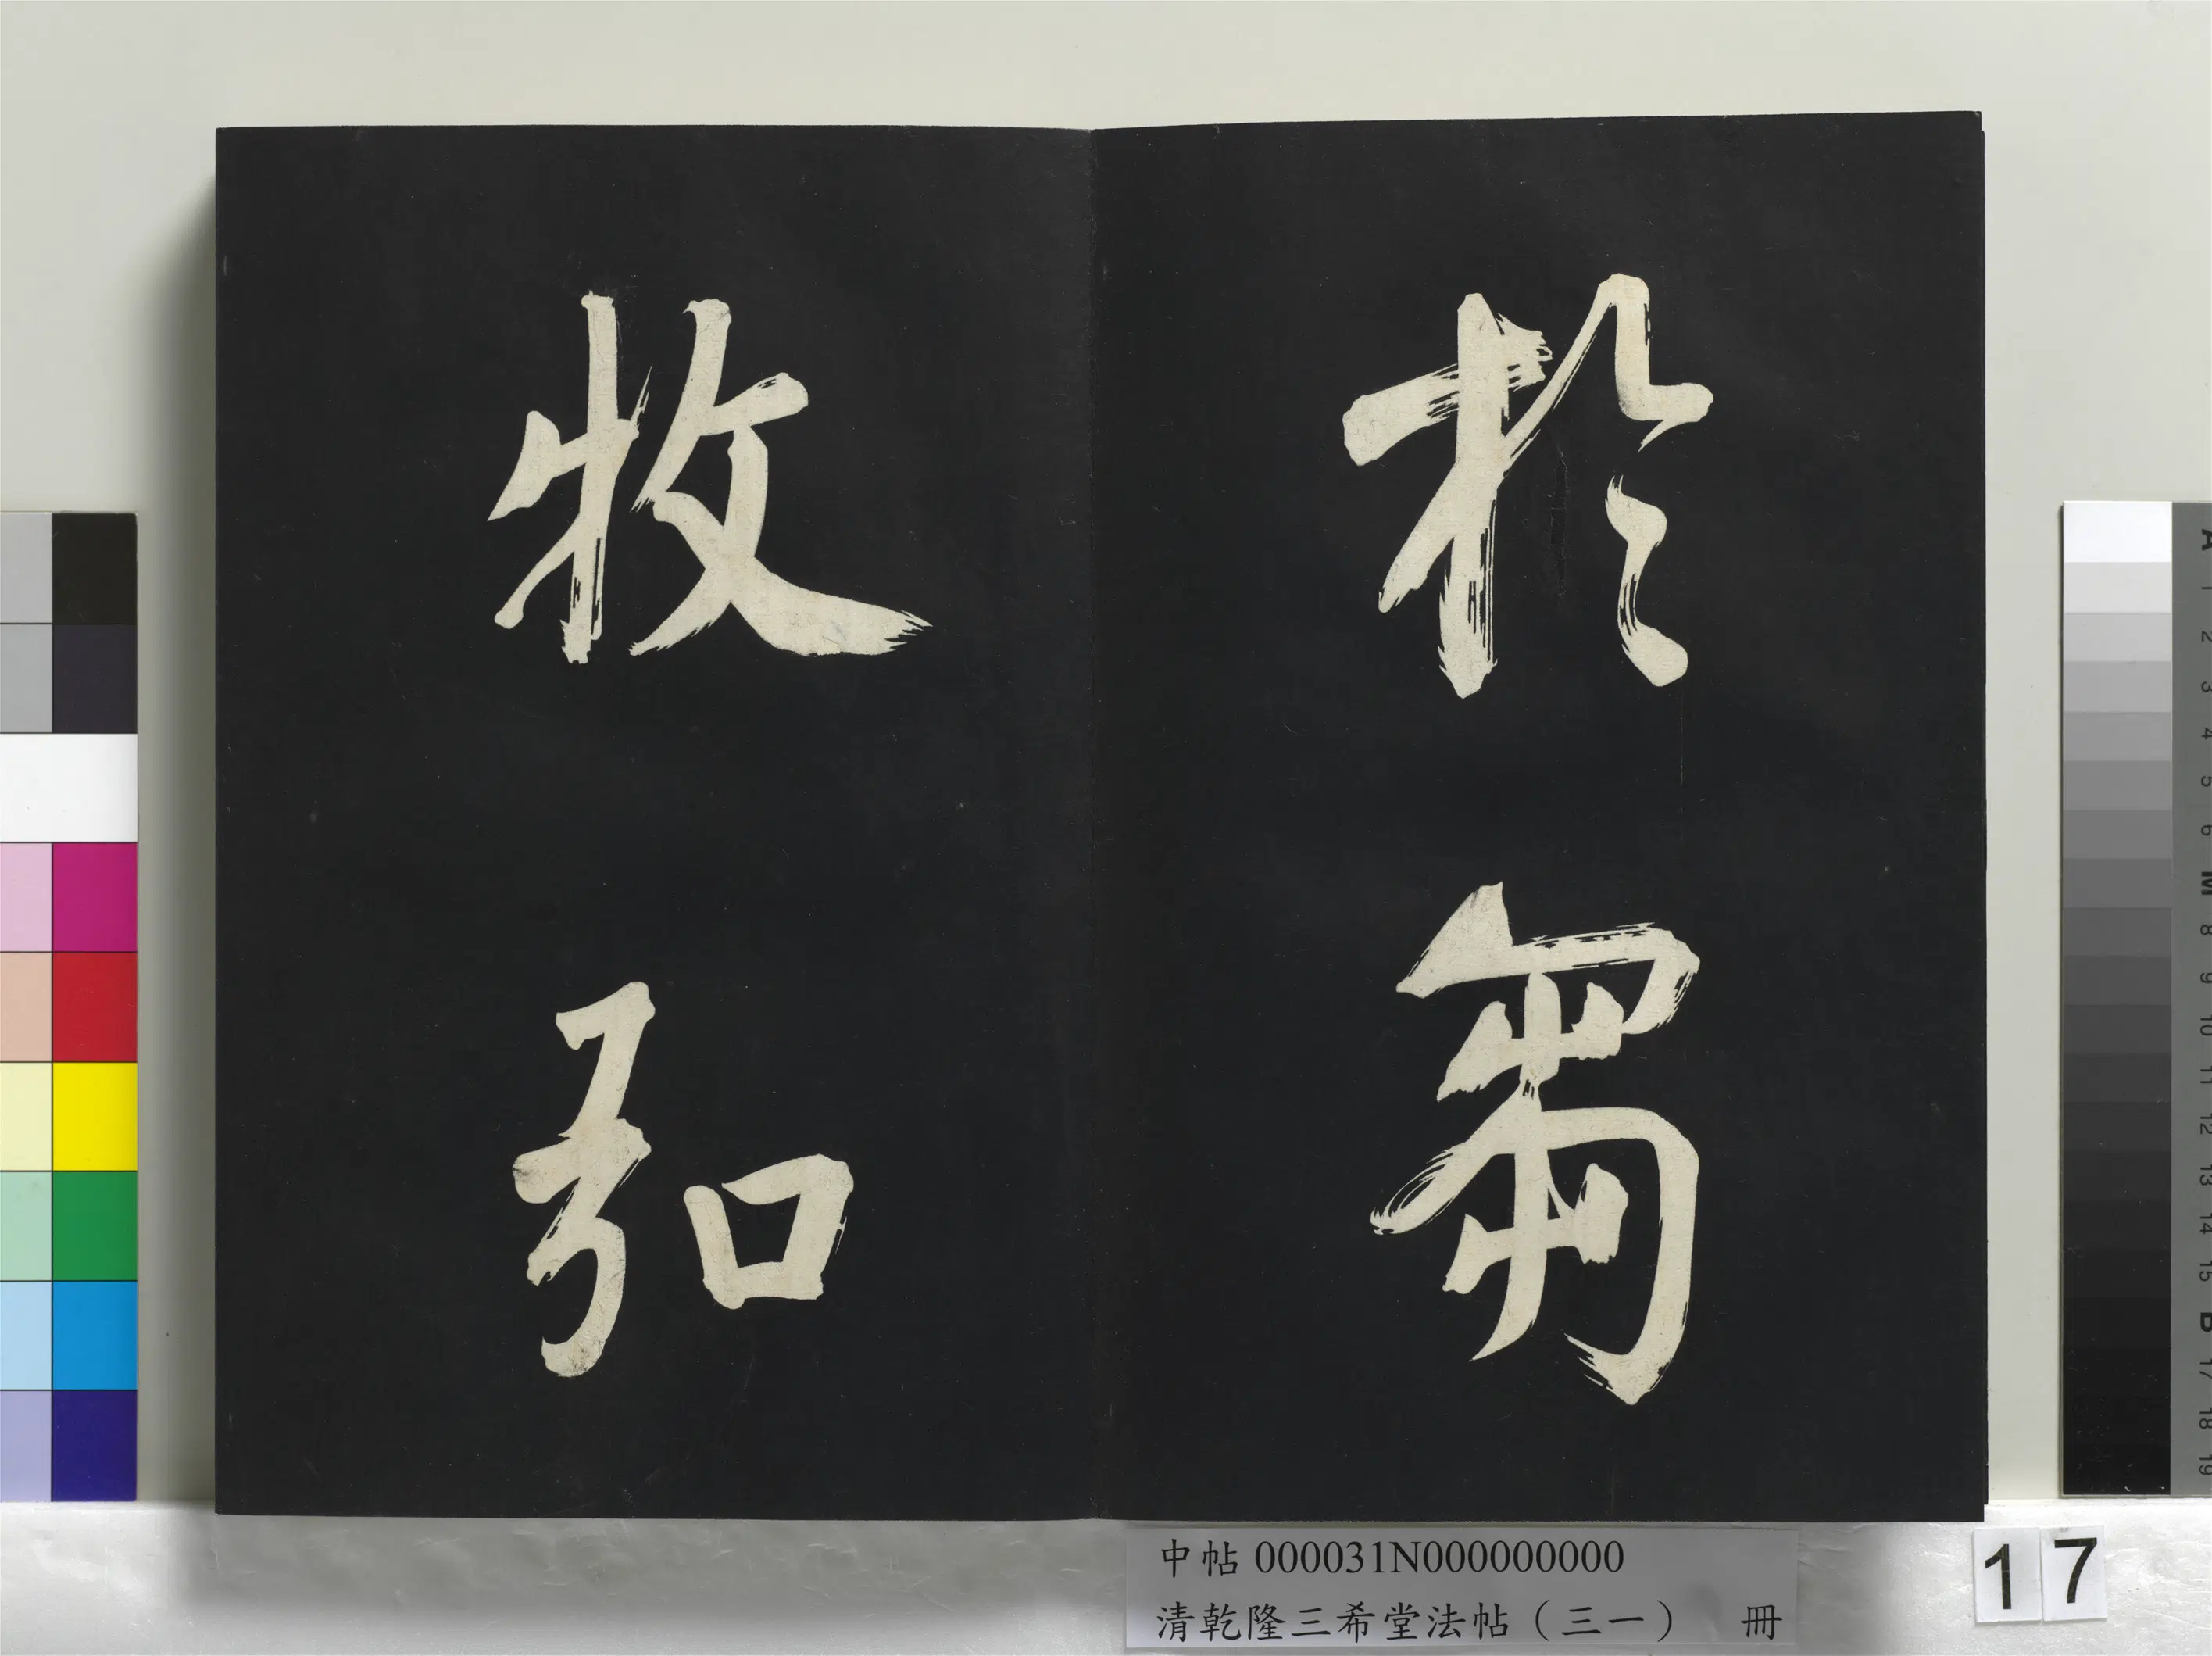 於芻
牧弘
中帖 000031N000000000
清乾隆三希堂法帖（三一） 冊
17
A
1
2
3
4
5
6
M
8
9
10
11
12
13
14
15
B
17
18
19